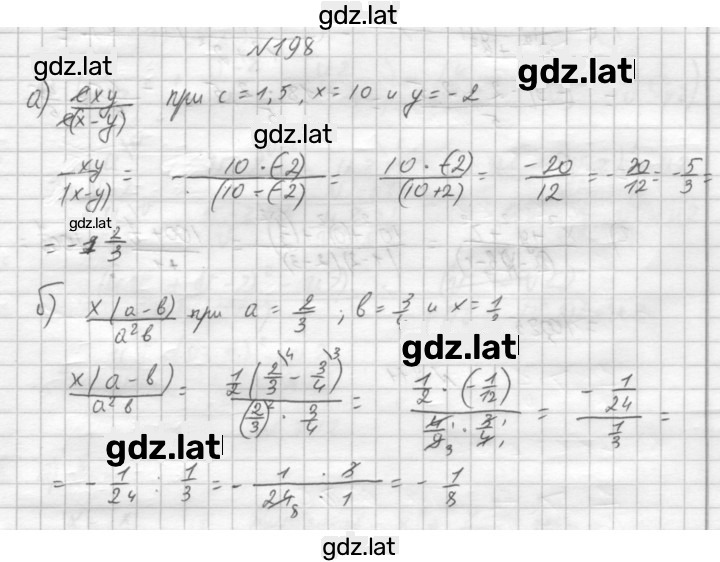 gdz.lat
№198
gdz.lat gdz.lat
а) cxy / c(x-y) при c = 1,5, x = 10 и y = -2
gdz.lat
xy / 1(x-y) = - 10 · (-2) / (10 - (-2)) = 10 · (-2) / (10+2) = -20/12 = - 20/12 = - 5/3 =
gdz.lat
= - 1 2/3
б) x(a-в) / a²в при a = 2/3 ; в = 3/ и x = 1/
gdz.lat
x(a-в) / a²в = 1/2 (2/3 \4 - 3/4 \3) / (2/3)² · 3/4 = 1/2 · (-1/12) / 4/9 · 3/4 = - 1/24 / 1/3 =
gdz.lat
= - 1/24 : 1/3 = - 1 · 3 / 24 : 1 = - 1/8
gdz.lat